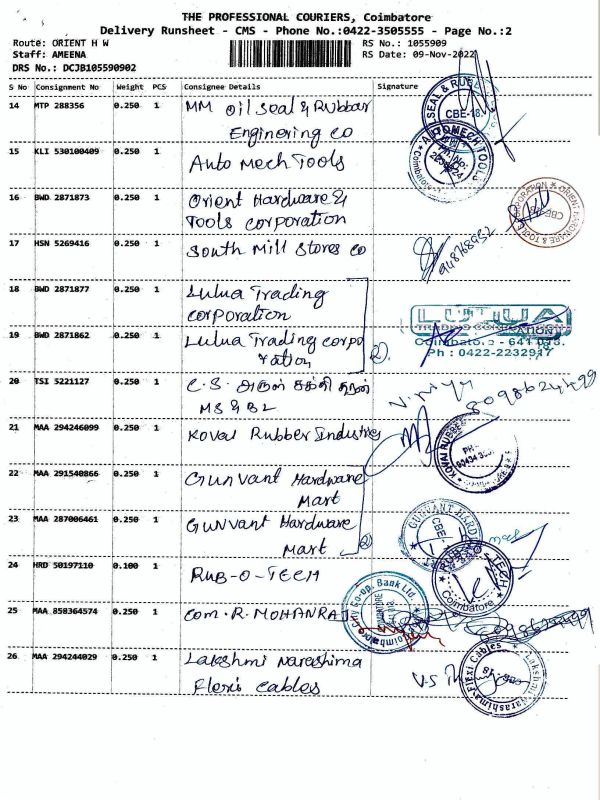 THE PROFESSIONAL COURIERS, Coimbatore
Delivery Runsheet - CMS - Phone No.:0422-3505555 - Page No.:2
Route: ORIENT H W
RS No.: 1055909
Staff: AMEENA
RS Date: 09-Nov-2022
DRS No.: DCJB105590902
S No Consignment No Weight PCS Consignee Details Signature
14 MTP 288356 0.250 1 MM Oil Seal & Rubbar
Enginering Co
CBE-18.
15 KLI 530100409 0.250 1 Auto Mech Tools
AUTOMECH TOOLS
16 BWD 2871873 0.250 1 Orient Hardware &
Tools Corporation
17 HSN 5269416 0.250 1 South Mill Stores Co
18 BWD 2871877 0.250 1 Lulua Trading
Corporation
LULUA
TRADING CORPORATION
19 BWD 2871862 0.250 1 Lulua Trading Corpo
ration
2).
Coimbatore - 641 018.
Ph : 0422-2232917
20 TSI 5221127 0.250 1 C.S.
MS & BL
8098624499
21 MAA 294246099 0.250 1 Kovai Rubber Industries
KOVAI RUBBER
22 MAA 291540866 0.250 1 Gunvant Hardware
Mart
23 MAA 287006461 0.250 1 Gunvant Hardware
Mart
2)
GUNVANT HARD
CBE-
24 HRD 50197110 0.100 1 Rub-O-Tech
RUB-O-TECH
Coimbatore
25 MAA 858364574 0.250 1 Com. R. MOHANRAJ
City Co-op. Bank Ltd.
26 MAA 294244029 0.250 1 Lakshmi Narashima
Flexi Cables
Lakshmi Narashima Flexi Cables